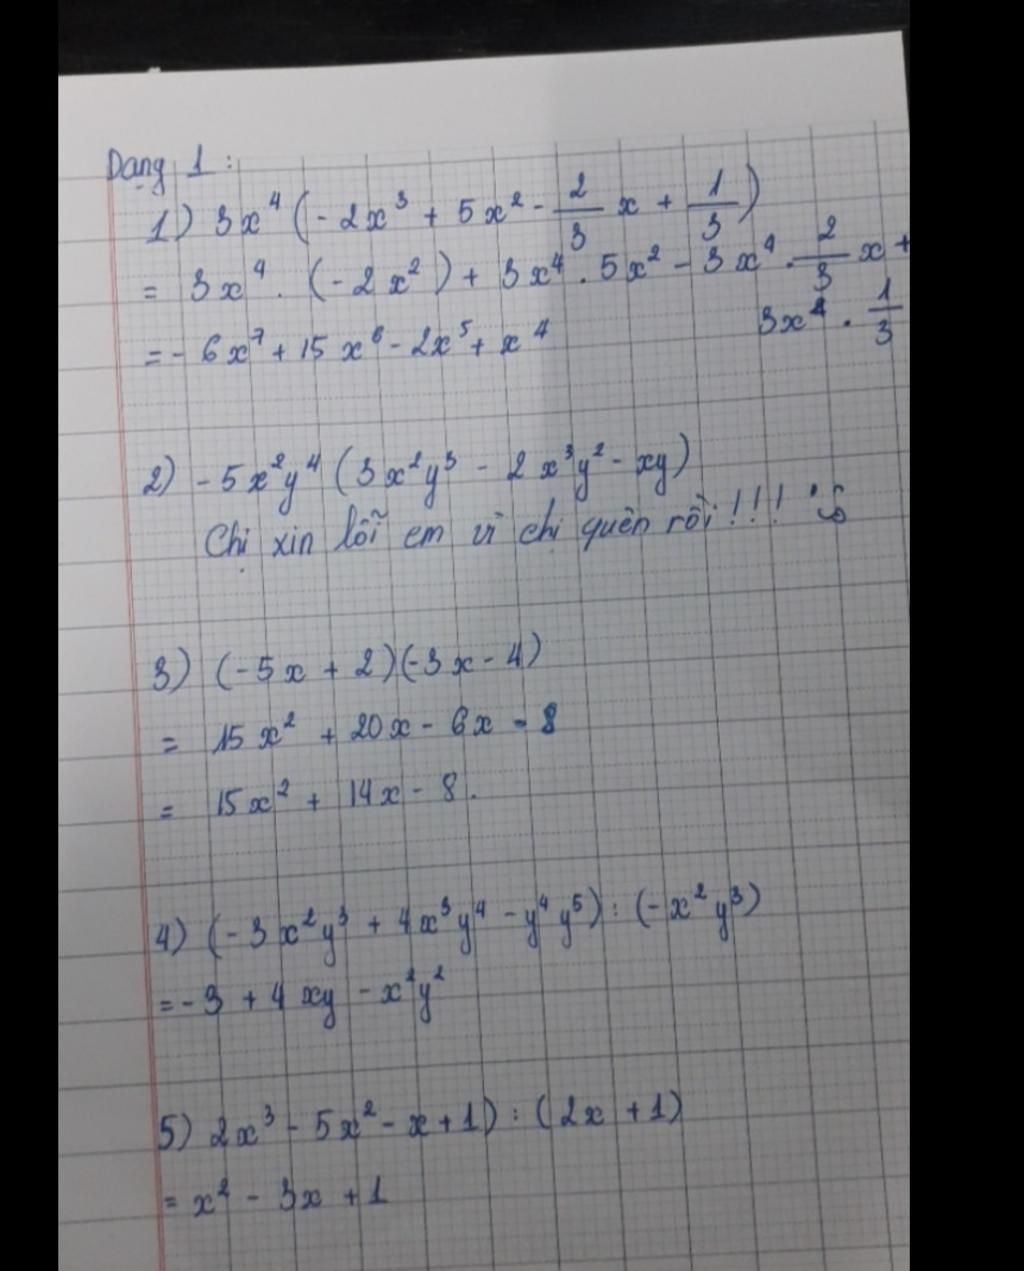 Dạng 1:
1) 3x⁴(-2x³ + 5x² - 2/3 x + 1/3)
= 3x⁴ . (-2x²) + 3x⁴ . 5x² - 3x⁴ . 2/3 x +
3x⁴ . 1/3
= - 6x⁷ + 15x⁶ - 2x⁵ + x⁴
2) -5x²y⁴(3x²y³ - 2x³y² - xy)
Chị xin lỗi em vì chị quên rồi!!!
3) (-5x + 2)(-3x - 4)
= 15x² + 20x - 6x - 8
= 15x² + 14x - 8.
4) (-3x²y³ + 4x³y⁴ - y⁴y⁵) : (-x²y³)
= -3 + 4xy - x²y²
5) 2x³ - 5x² - x + 1) : (2x + 1)
= x² - 3x + 1